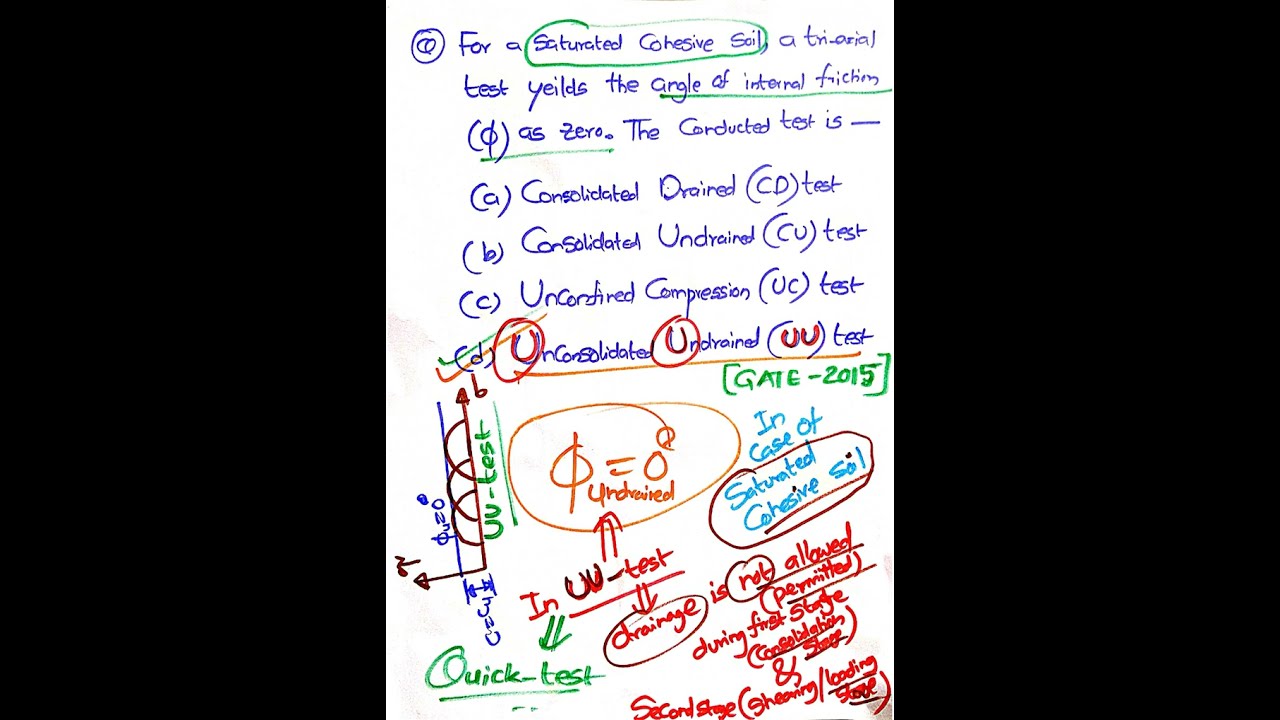 Q For a Saturated Cohesive Soil, a tri-axial
test yeilds the angle of internal friction
(ϕ) as zero. The Conducted test is —
(a) Consolidated Drained (CD) test
(b) Consolidated Undrained (CU) test
(c) Unconfired Compression (UC) test
(d) Unconsolidated Undrained (UU) test
[GATE-2015]
ϕ undrained = 0
In
case of
Saturated
Cohesive Soil
UU-test
In UU-test
Quick-test
drainage is not allowed
(permitted)
during first stage
(consolidation
stage)
&
Second stage (shearing/loading
stage)